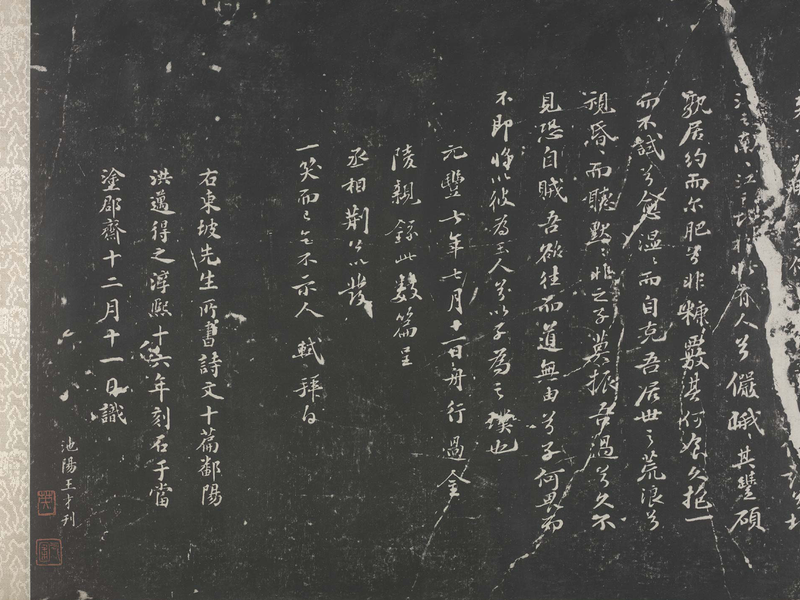 江之南、江之有人兮儼峨、其豐碩
孰居約而尔肥兮非糠覈其何食久抱一
而不試兮愈温、而自克吾居世之荒浪兮
視昏、而聽默、非之子莫振吾過兮久不
見恐自賊吾欲往而道無由兮子何畏而
不即將以彼為玉人兮以子為之璞也
元豐七年七月十一日舟行過金
陵親錄此數篇呈
丞相荊公以發
一笑而已乞不示人 軾拜白
右東坡先生所書詩文十篇鄱陽
洪邁得之淳熙十六年刻石于當
塗郡齋十二月十一日識
池陽王才刊